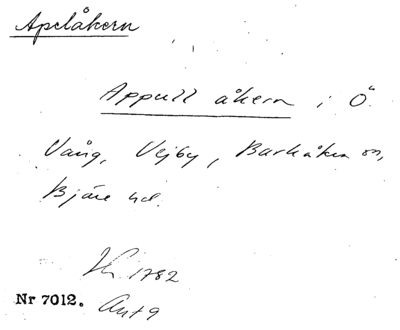 Apelåkern
Appull åkern i Ö.
Vång, Vejby, Barkåkra sn,
Bjäre hd.
1782
Nr 7012. Akt 9